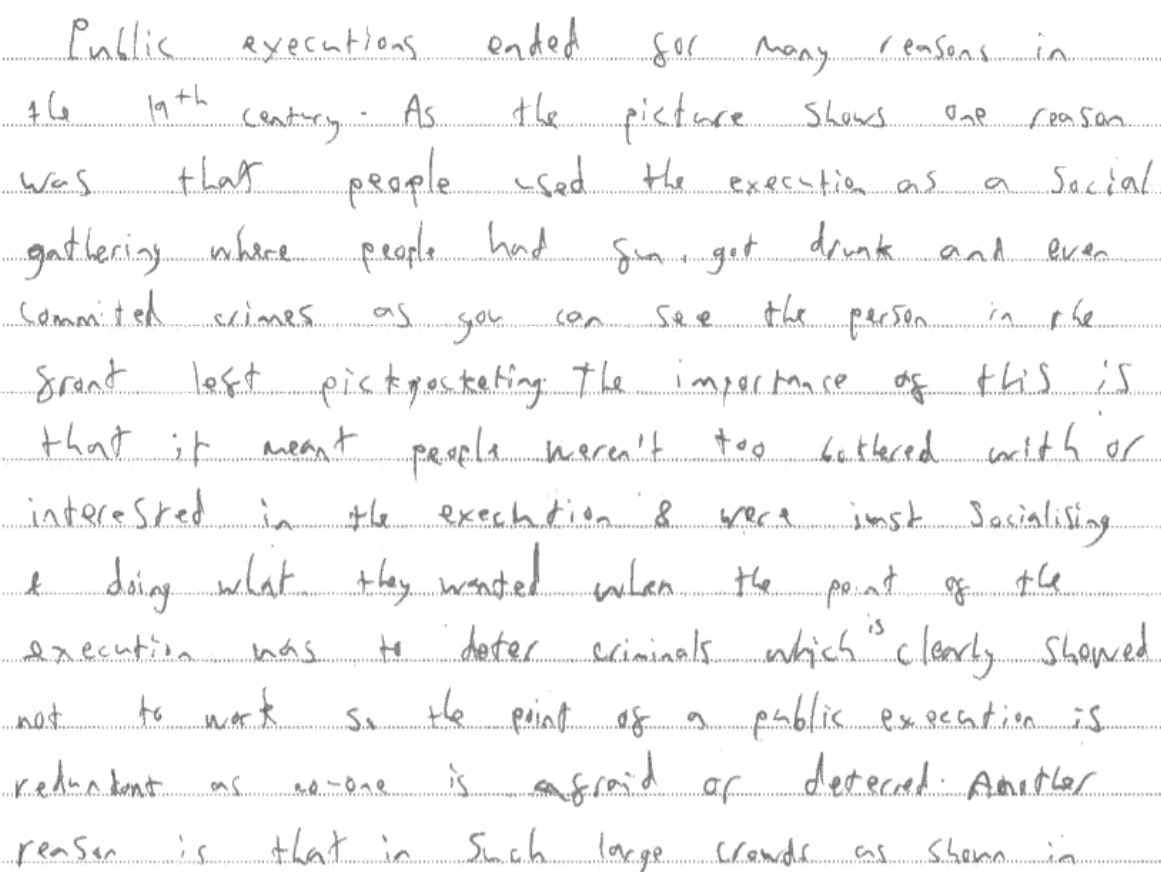 Public executions ended for many reasons in
the 19th century. As the picture shows one reason
was that people used the execution as a social
gathering where people had fun, got drunk and even
commited crimes as you can see the person in the
front left pickpocketing. The importance of this is
that it meant people weren't too bothered with or
interested in the execution & were just socialising
& doing what they wanted when the point of the
execution was to deter criminals which is clearly showed
not to work so the point of a public execution is
redundant as no-one is afraid or deterred. Another
reason is that in such large crowds as shown in